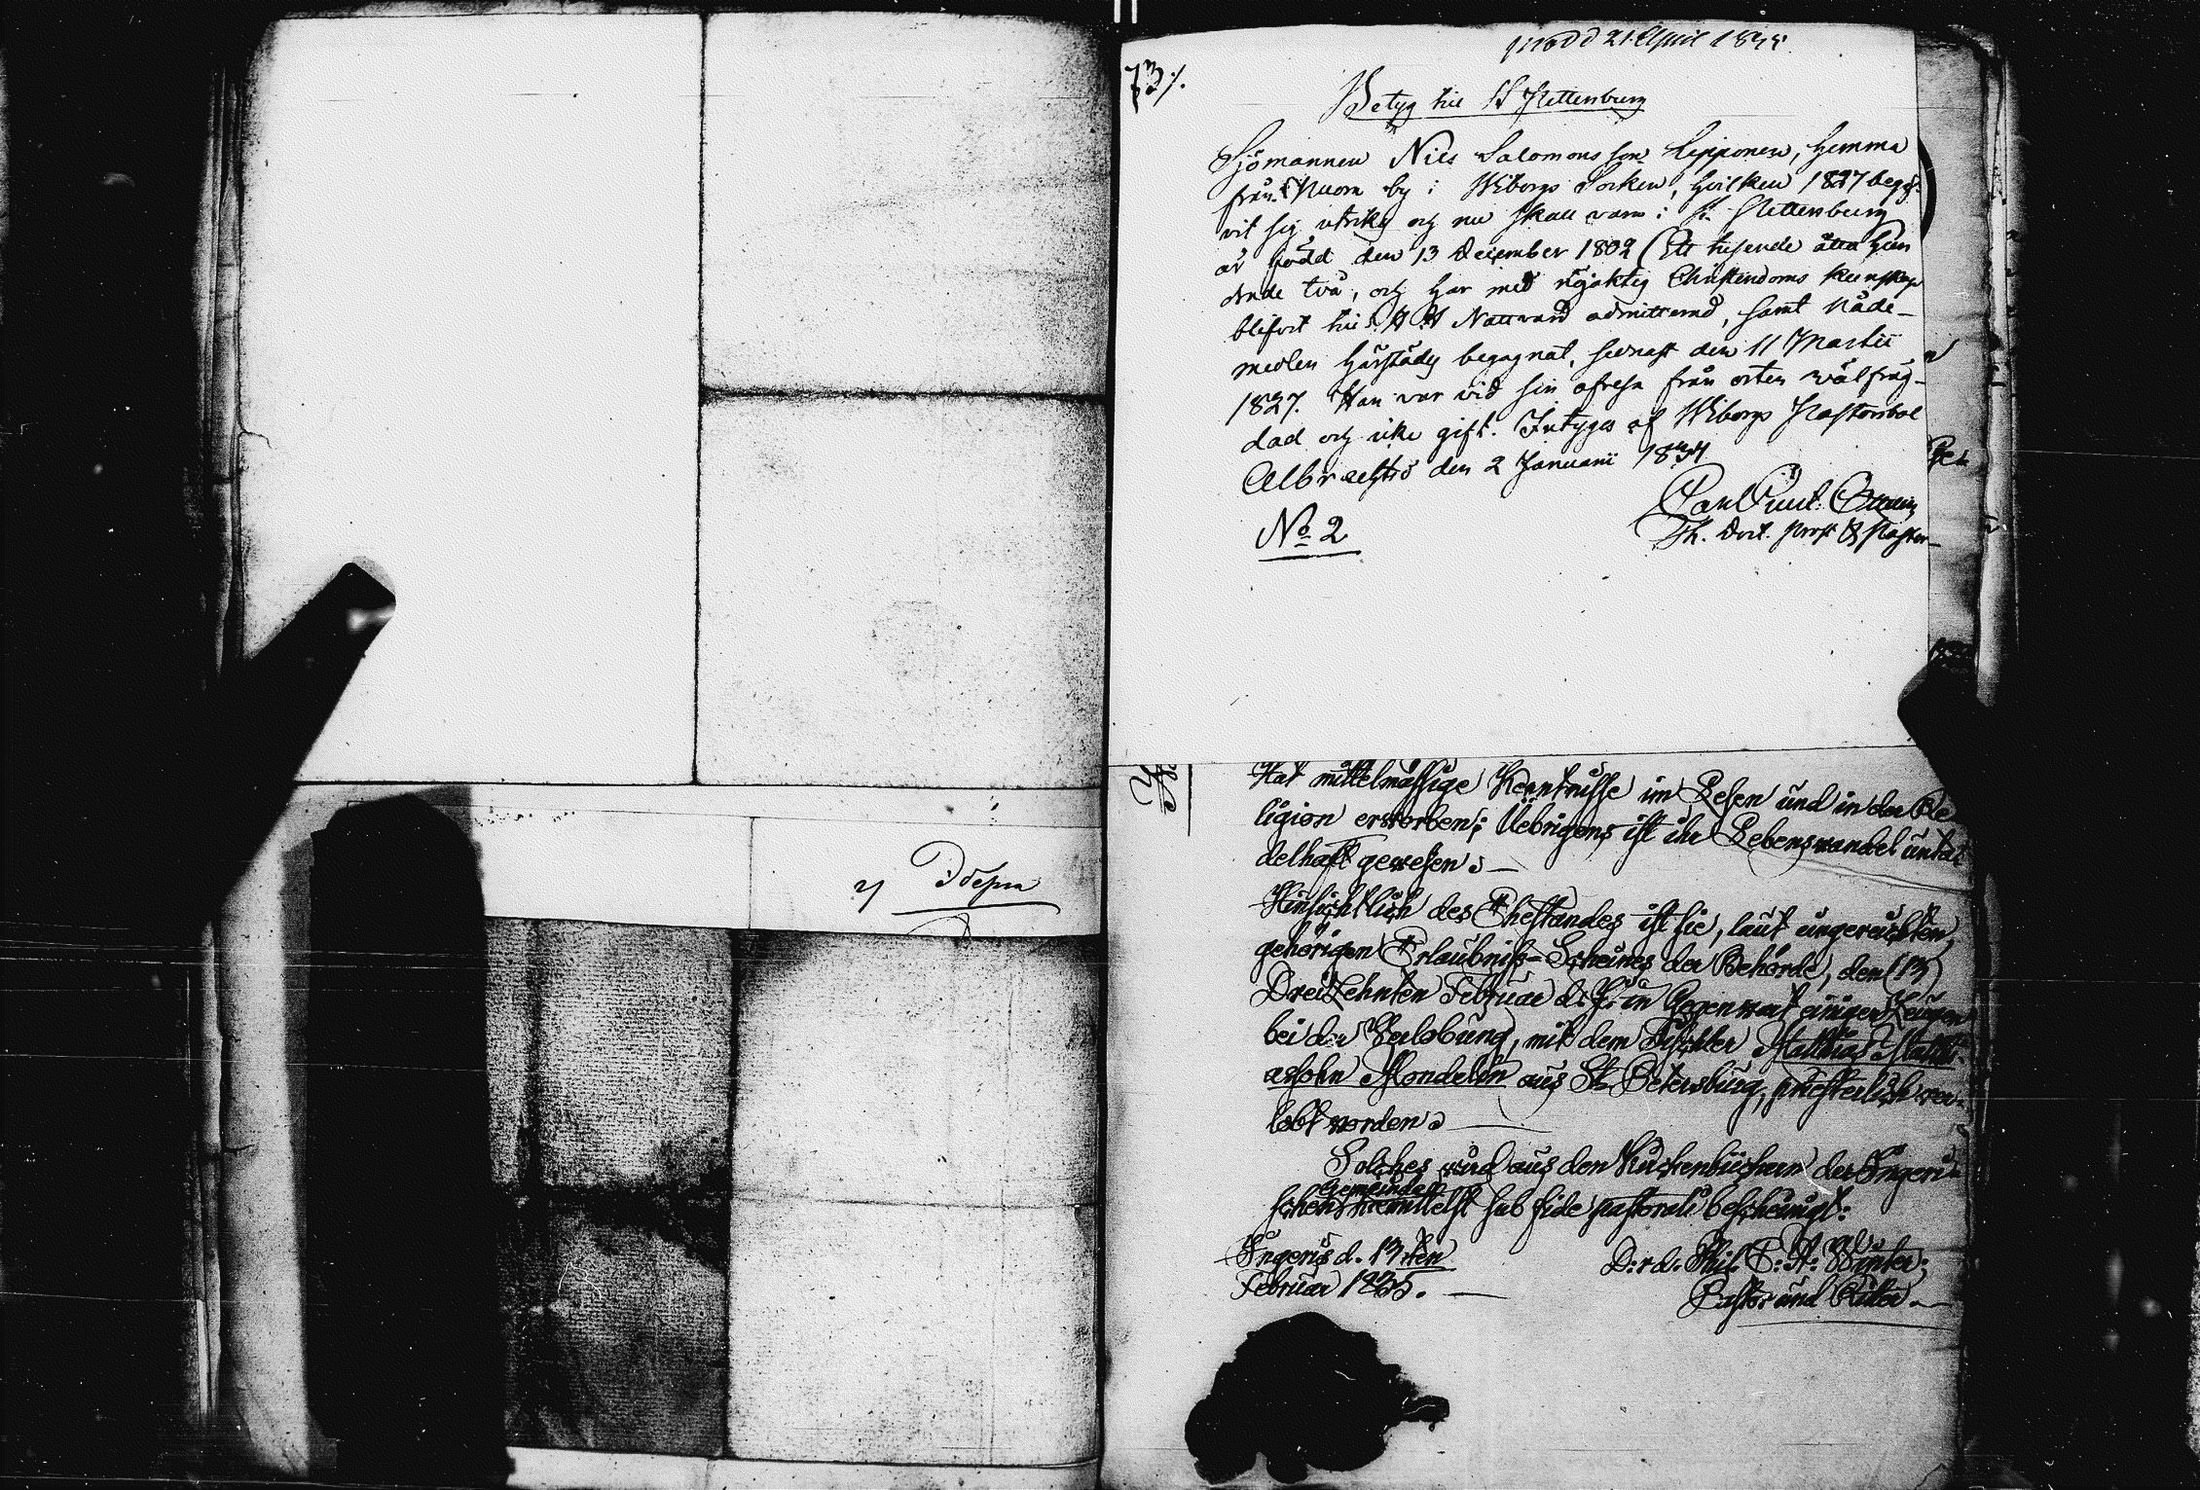 21 April 1835
73%.
Betyg till St Pettersburg
Sjömannen Nils Salomonsson Lipponen, hemma
från by i Wiborgs Socken, hvilken 1827 begif-
vit sig utrikes och nu skall vara i St. Pettersburg
är född den 13 December 1802 (Ett tusende åtta hun
drade två, och har med nöjaktig Christendoms kunskap
blifvit till H. H. Nattvard admitterad, samt Nåde-
medlen härstädes begagnat, senast den 11 Martii
1827. Han var vid sin afresa från orten välfräg-
dad och icke gift. Intygas af Wiborgs Pastorsbol
Albrechtsro den 2 Januarii 1834
Th. Doct. Prost & Pastor
No 2
Hat mittelmässige Kenntnisse im Lesen und in der Re
ligion erworben; Uebrigens ist ihr Lebenswandel unta
delhaft gewesen. —
Hinsichtlich des Ehestandes ist sie, laut eingereichten,
gehörigen Erlaubniss-Scheines der Behörde, den (13)
Dreizehnten Februar d. J. in Gegenwart einiger Zeugen
bei der Verlobung, mit dem Tischler Matthias Matthi-
assohn Mondelin aus St. Petersburg, priesterlich ver-
lobt worden. —
Solches wird aus den Kirchenbüchern der Ingeri-
Gemeinde
schen hiemittelst sub fide pastorali bescheinigt:
Ingeris d. 13ten
Februar 1835. —
D:r d. Phil. C: H: Winter,
Pastor und Ritter. —